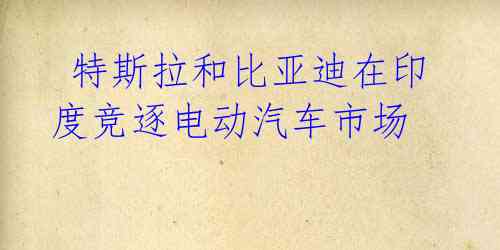 特斯拉和比亚迪在印
度竞逐电动汽车市场